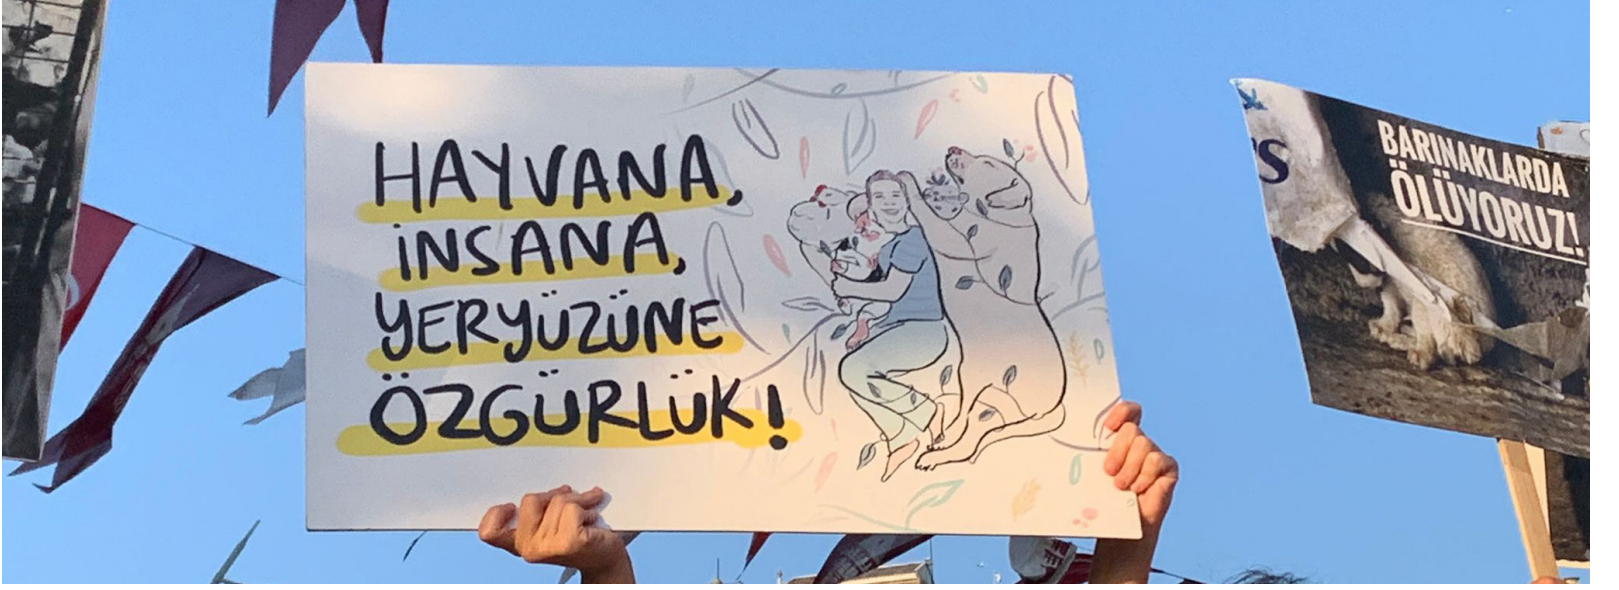 HAYVANA,
İNSANA,
YERYÜZÜNE
ÖZGÜRLÜK!
BARINAKLARDA
ÖLÜYORUZ!